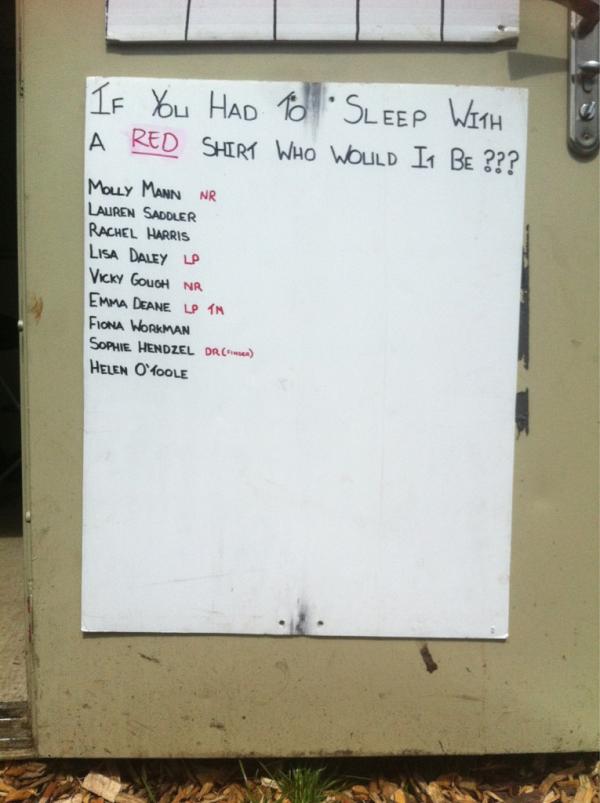 IF YOU HAD TO SLEEP WITH
A RED SHIRT WHO WOULD IT BE ???
MOLLY MANN NR
LAUREN SADDLER
RACHEL HARRIS
LISA DALEY LP
VICKY GOUGH NR
EMMA DEANE LP TM
FIONA WORKMAN
SOPHIE HENDZEL DR (FINGER)
HELEN O'TOOLE